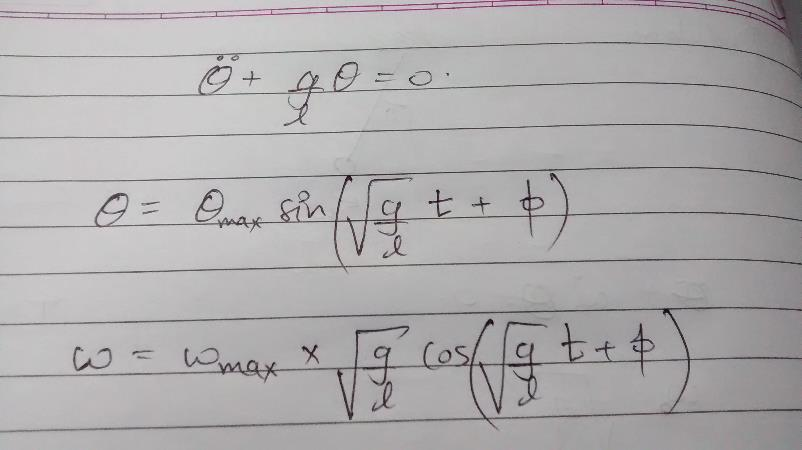 θ̈ + g/l θ = 0.
θ = θmax sin(√(g/l) t + ϕ)
ω = ωmax × √(g/l) cos(√(g/l) t + ϕ)